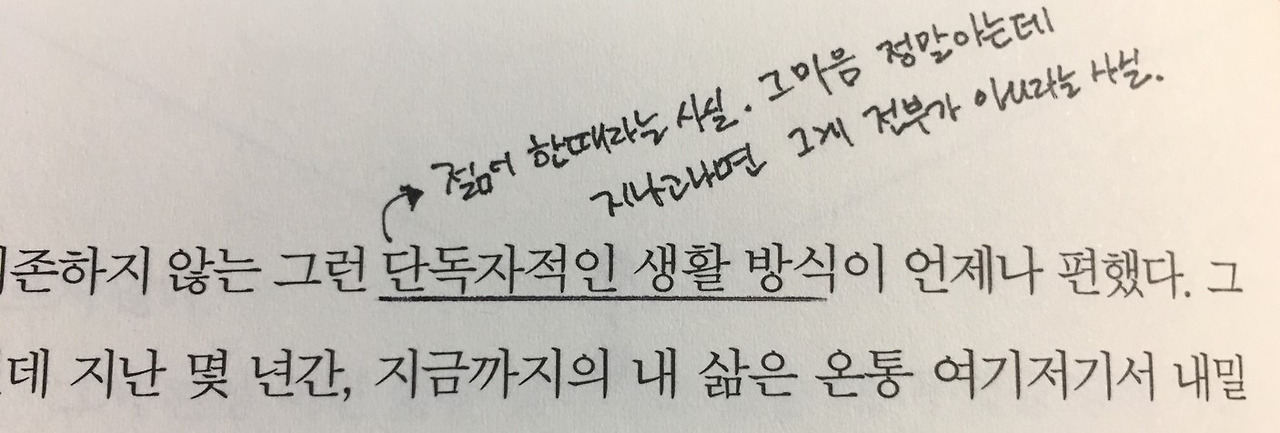 젊어 한때라는 사실. 그마음 정말아는데
지나고나면 그게 전부가 아니라는 사실.
존하지 않는 그런 단독자적인 생활 방식이 언제나 편했다. 그
데 지난 몇 년간, 지금까지의 내 삶은 온통 여기저기서 내밀